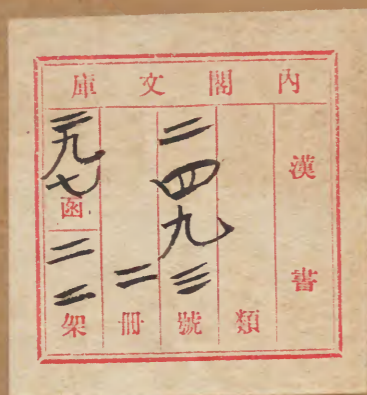 內閣文庫
漢書
類
二四九三號
二冊
二九七函
二二架